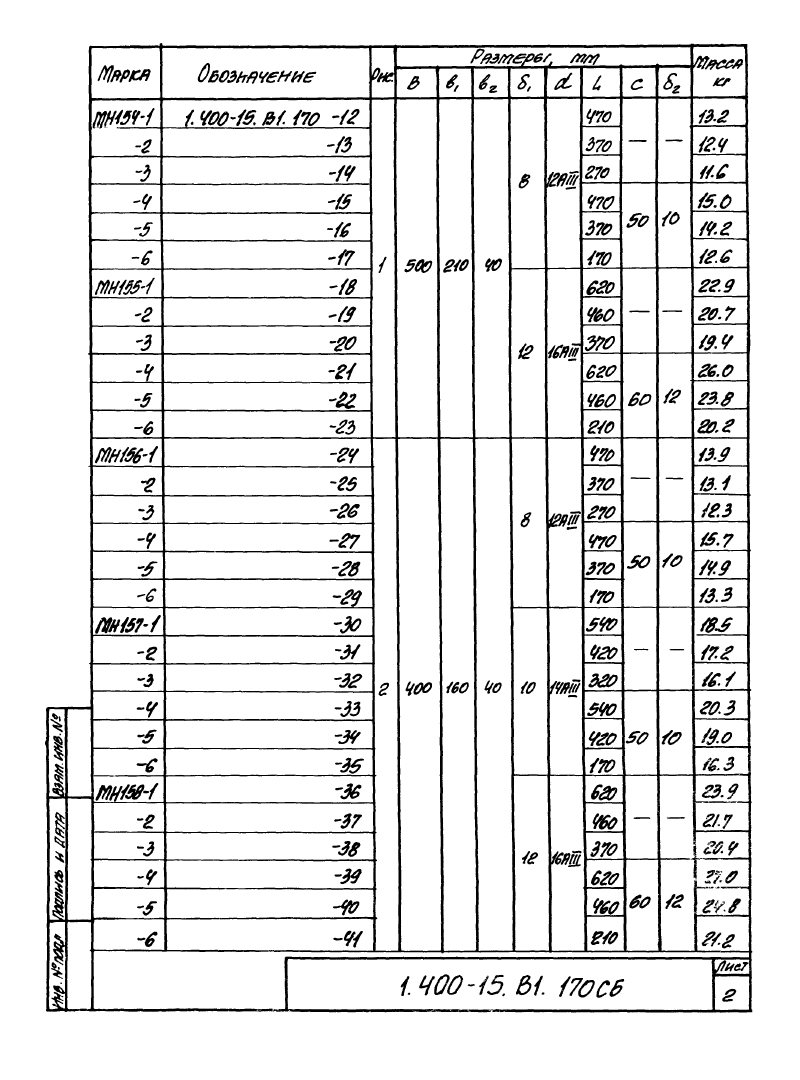 Марка Обозначение Рис Размеры, мм Масса кг
B b₁ b₂ δ₁ d L c δ₂
МН154-1 1.400-15. В1. 170 -12 1 500 210 40 8 12АIII 470 — — 13.2
-2 -13 370 12.4
-3 -14 270 11.6
-4 -15 470 50 10 15.0
-5 -16 370 14.2
-6 -17 170 12.6
МН155-1 -18 12 16АIII 620 — — 22.9
-2 -19 460 20.7
-3 -20 370 19.4
-4 -21 620 60 12 26.0
-5 -22 460 23.8
-6 -23 210 20.2
МН156-1 -24 2 400 160 40 8 12АIII 470 — — 13.9
-2 -25 370 13.1
-3 -26 270 12.3
-4 -27 470 50 10 15.7
-5 -28 370 14.9
-6 -29 170 13.3
МН157-1 -30 10 14АIII 540 — — 18.5
-2 -31 420 17.2
-3 -32 320 16.1
-4 -33 540 50 10 20.3
-5 -34 420 19.0
-6 -35 170 16.3
МН158-1 -36 12 16АIII 620 — — 23.9
-2 -37 460 21.7
-3 -38 370 20.4
-4 -39 620 60 12 27.0
-5 -40 460 24.8
-6 -41 210 21.2
Взам. инв. №
Подпись и дата
Инв. № подл
1.400-15. В1. 170СБ
Лист
2